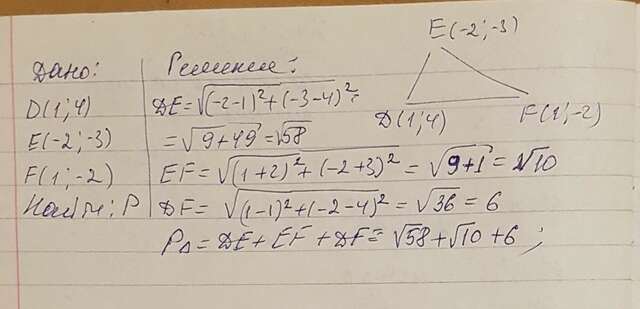 E(-2;-3)
D(1;4) F(1;-2)
Дано:
D(1;4)
E(-2;-3)
F(1;-2)
Найти: P
Решение:
DE=√(-2-1)²+(-3-4)²=
=√9+49=√58
EF=√(1+2)²+(-2+3)²=√9+1=√10
DF=√(1-1)²+(-2-4)²=√36=6
P△=DE+EF+DF=√58+√10+6;